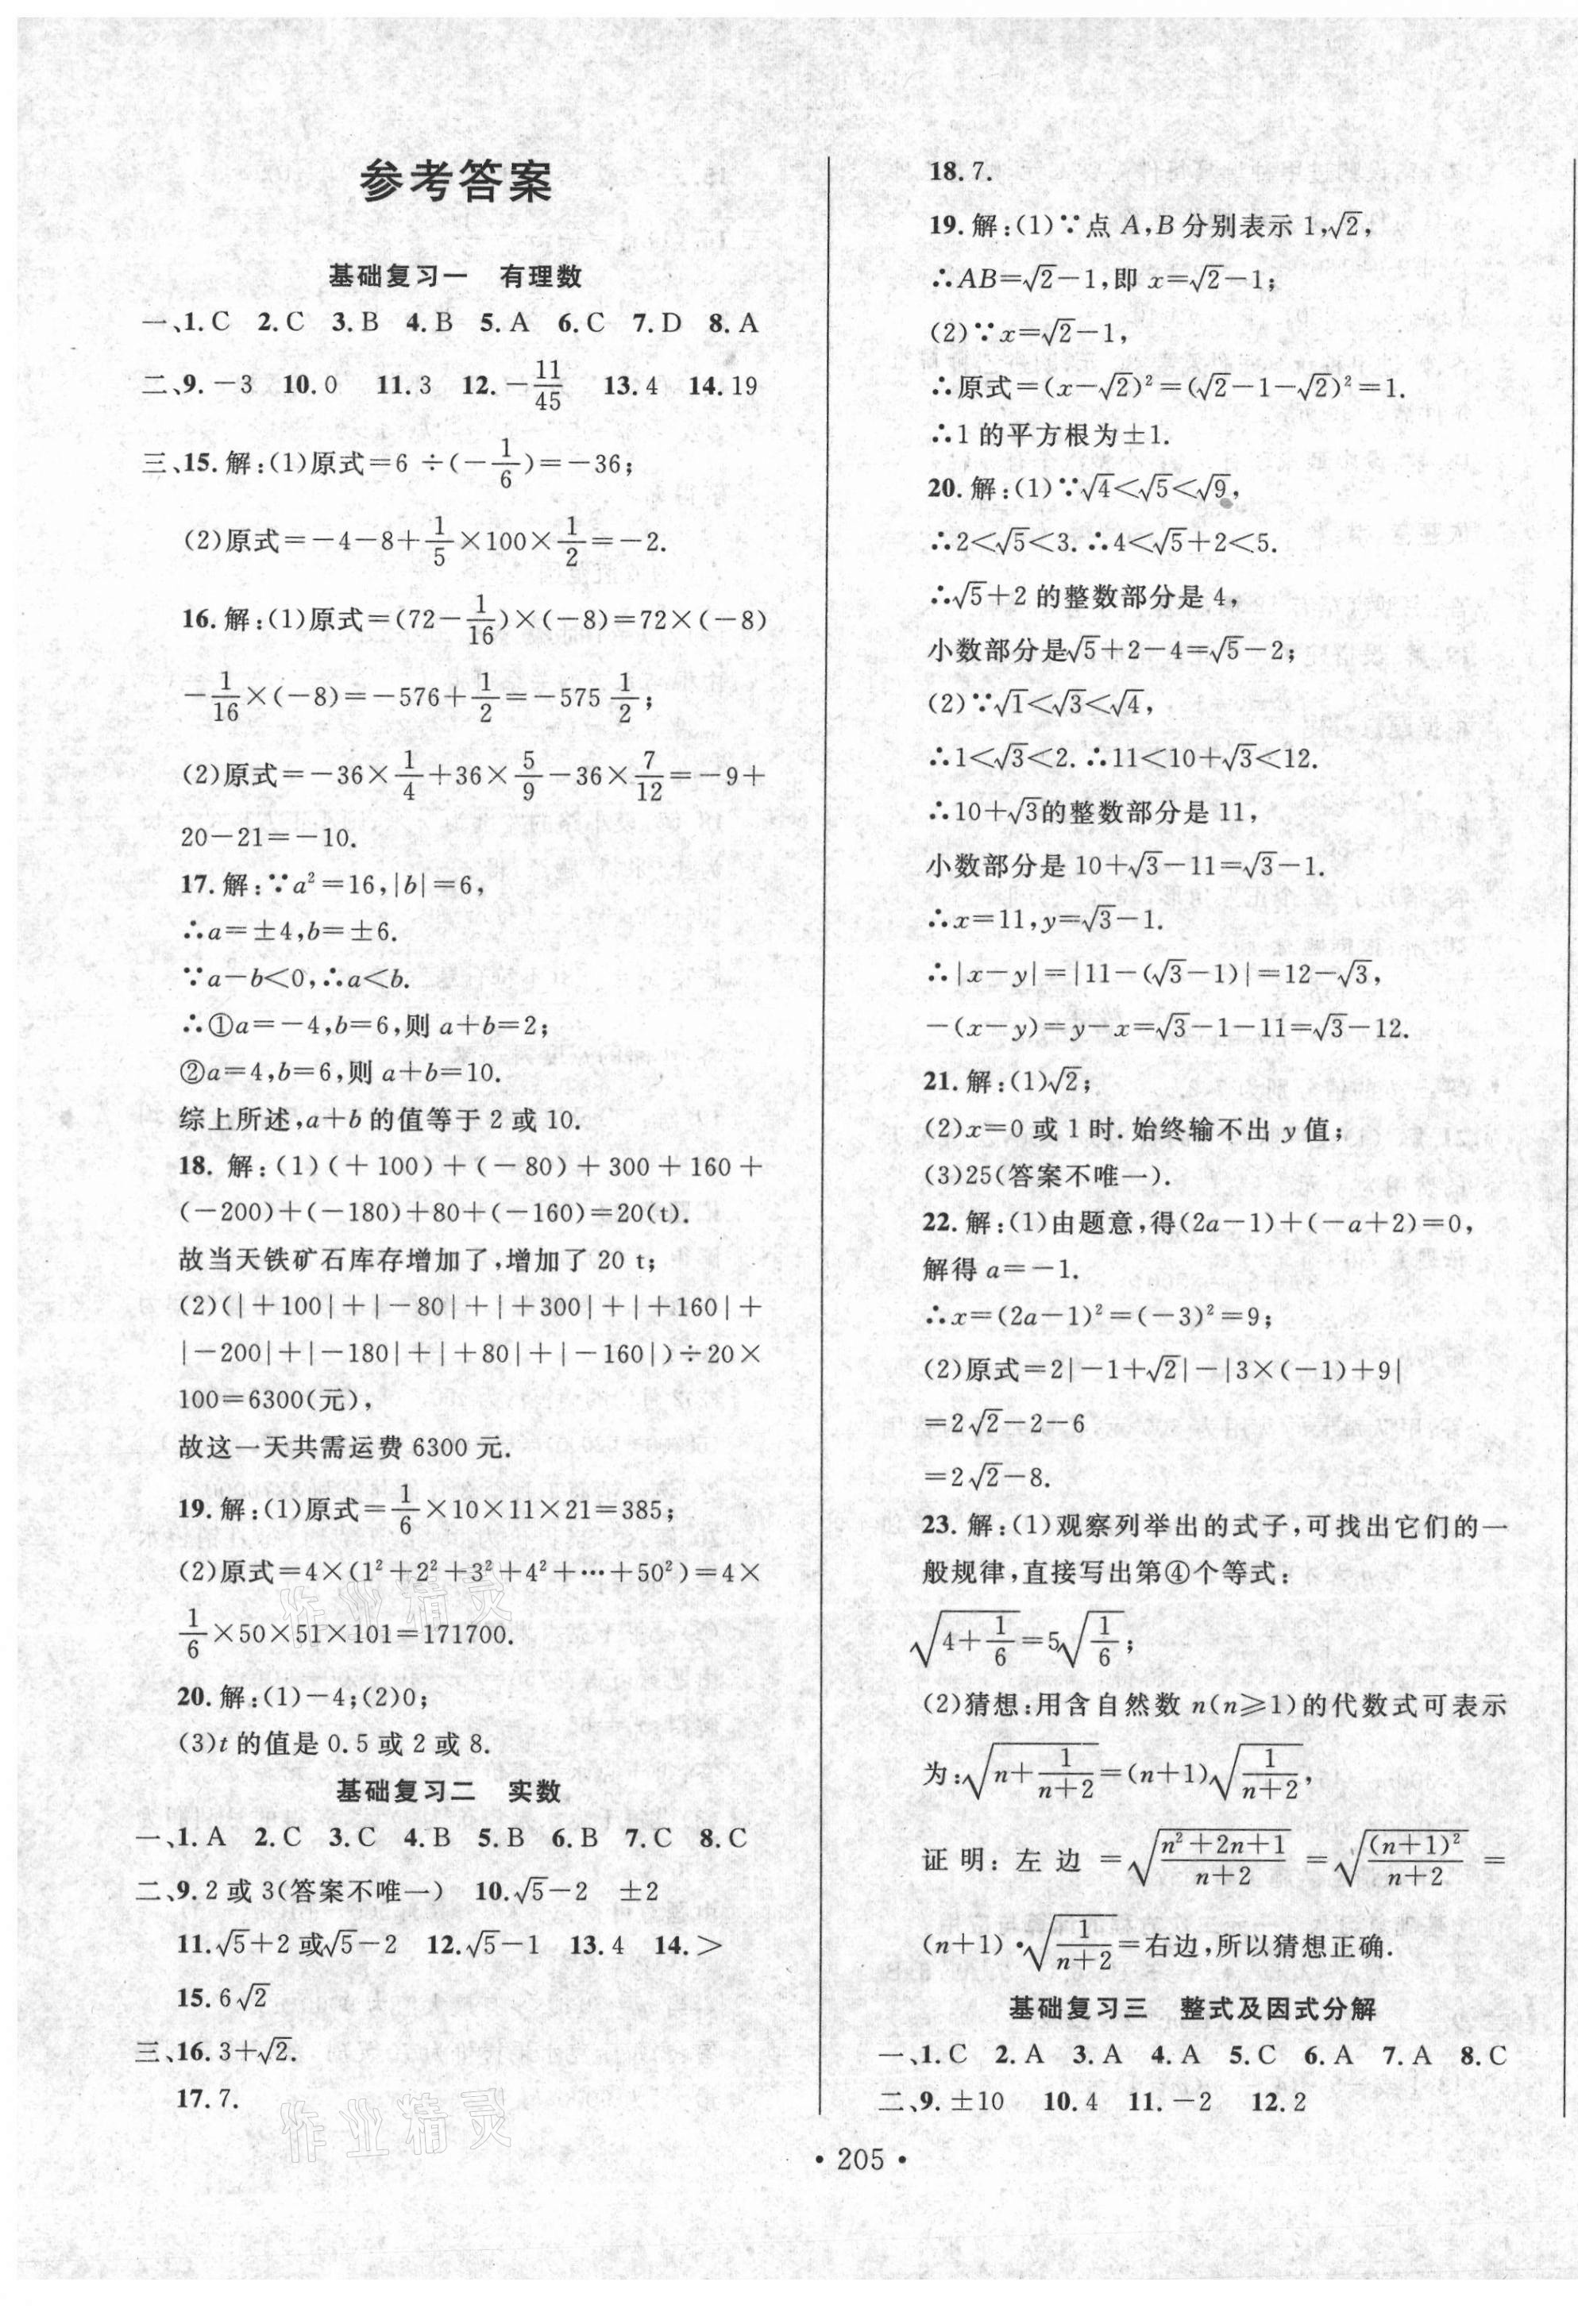 参考答案
基础复习一 有理数
一、1.C 2.C 3.B 4.B 5.A 6.C 7.D 8.A
二、9.－3 10.0 11.3 12.－11/45 13.4 14.19
三、15.解:(1)原式＝6÷(－1/6)＝－36;
(2)原式＝－4－8＋1/5×100×1/2＝－2.
16.解:(1)原式＝(72－1/16)×(－8)＝72×(－8)
－1/16×(－8)＝－576＋1/2＝－575 1/2;
(2)原式＝－36×1/4＋36×5/9－36×7/12＝－9＋
20－21＝－10.
17.解:∵a²＝16,|b|＝6,
∴a＝±4,b＝±6.
∵a－b<0,∴a<b.
∴①a＝－4,b＝6,则 a＋b＝2;
②a＝4,b＝6,则 a＋b＝10.
综上所述,a＋b 的值等于 2 或 10.
18. 解:(1)(＋100)＋(－80)＋300＋160＋
(－200)＋(－180)＋80＋(－160)＝20(t).
故当天铁矿石库存增加了,增加了 20 t;
(2)(|＋100|＋|－80|＋|＋300|＋|＋160|＋
|－200|＋|－180|＋|＋80|＋|－160|)÷20×
100＝6300(元),
故这一天共需运费 6300 元.
19.解:(1)原式＝1/6×10×11×21＝385;
(2)原式＝4×(1²＋2²＋3²＋4²＋…＋50²)＝4×
1/6×50×51×101＝171700.
20.解:(1)－4;(2)0;
(3)t 的值是 0.5 或 2 或 8.
基础复习二 实数
一、1.A 2.C 3.C 4.B 5.B 6.B 7.C 8.C
二、9.2 或 3(答案不唯一) 10.√5－2 ±2
11.√5＋2 或√5－2 12.√5－1 13.4 14.>
15.6√2
三、16.3＋√2.
17.7.
18.7.
19.解:(1)∵点 A,B 分别表示 1,√2,
∴AB＝√2－1,即 x＝√2－1;
(2)∵x＝√2－1,
∴原式＝(x－√2)²＝(√2－1－√2)²＝1.
∴1 的平方根为±1.
20.解:(1)∵√4<√5<√9,
∴2<√5<3.∴4<√5＋2<5.
∴√5＋2 的整数部分是 4,
小数部分是√5＋2－4＝√5－2;
(2)∵√1<√3<√4,
∴1<√3<2.∴11<10＋√3<12.
∴10＋√3的整数部分是 11,
小数部分是 10＋√3－11＝√3－1.
∴x＝11,y＝√3－1.
∴|x－y|＝|11－(√3－1)|＝12－√3,
－(x－y)＝y－x＝√3－1－11＝√3－12.
21.解:(1)√2;
(2)x＝0 或 1 时.始终输不出 y 值;
(3)25(答案不唯一).
22.解:(1)由题意,得(2a－1)＋(－a＋2)＝0,
解得 a＝－1.
∴x＝(2a－1)²＝(－3)²＝9;
(2)原式＝2|－1＋√2|－|3×(－1)＋9|
＝2√2－2－6
＝2√2－8.
23.解:(1)观察列举出的式子,可找出它们的一
般规律,直接写出第④个等式:
√(4＋1/6)＝5√(1/6);
(2)猜想:用含自然数 n(n≥1)的代数式可表示
为:√(n＋1/(n＋2))＝(n＋1)√(1/(n＋2)),
证明:左边＝√((n²＋2n＋1)/(n＋2))＝√((n＋1)²/(n＋2))＝
(n＋1)·√(1/(n＋2))＝右边,所以猜想正确.
基础复习三 整式及因式分解
一、1.C 2.A 3.A 4.A 5.C 6.A 7.A 8.C
二、9.±10 10.4 11.－2 12.2
·205·
作业精灵
作业精灵